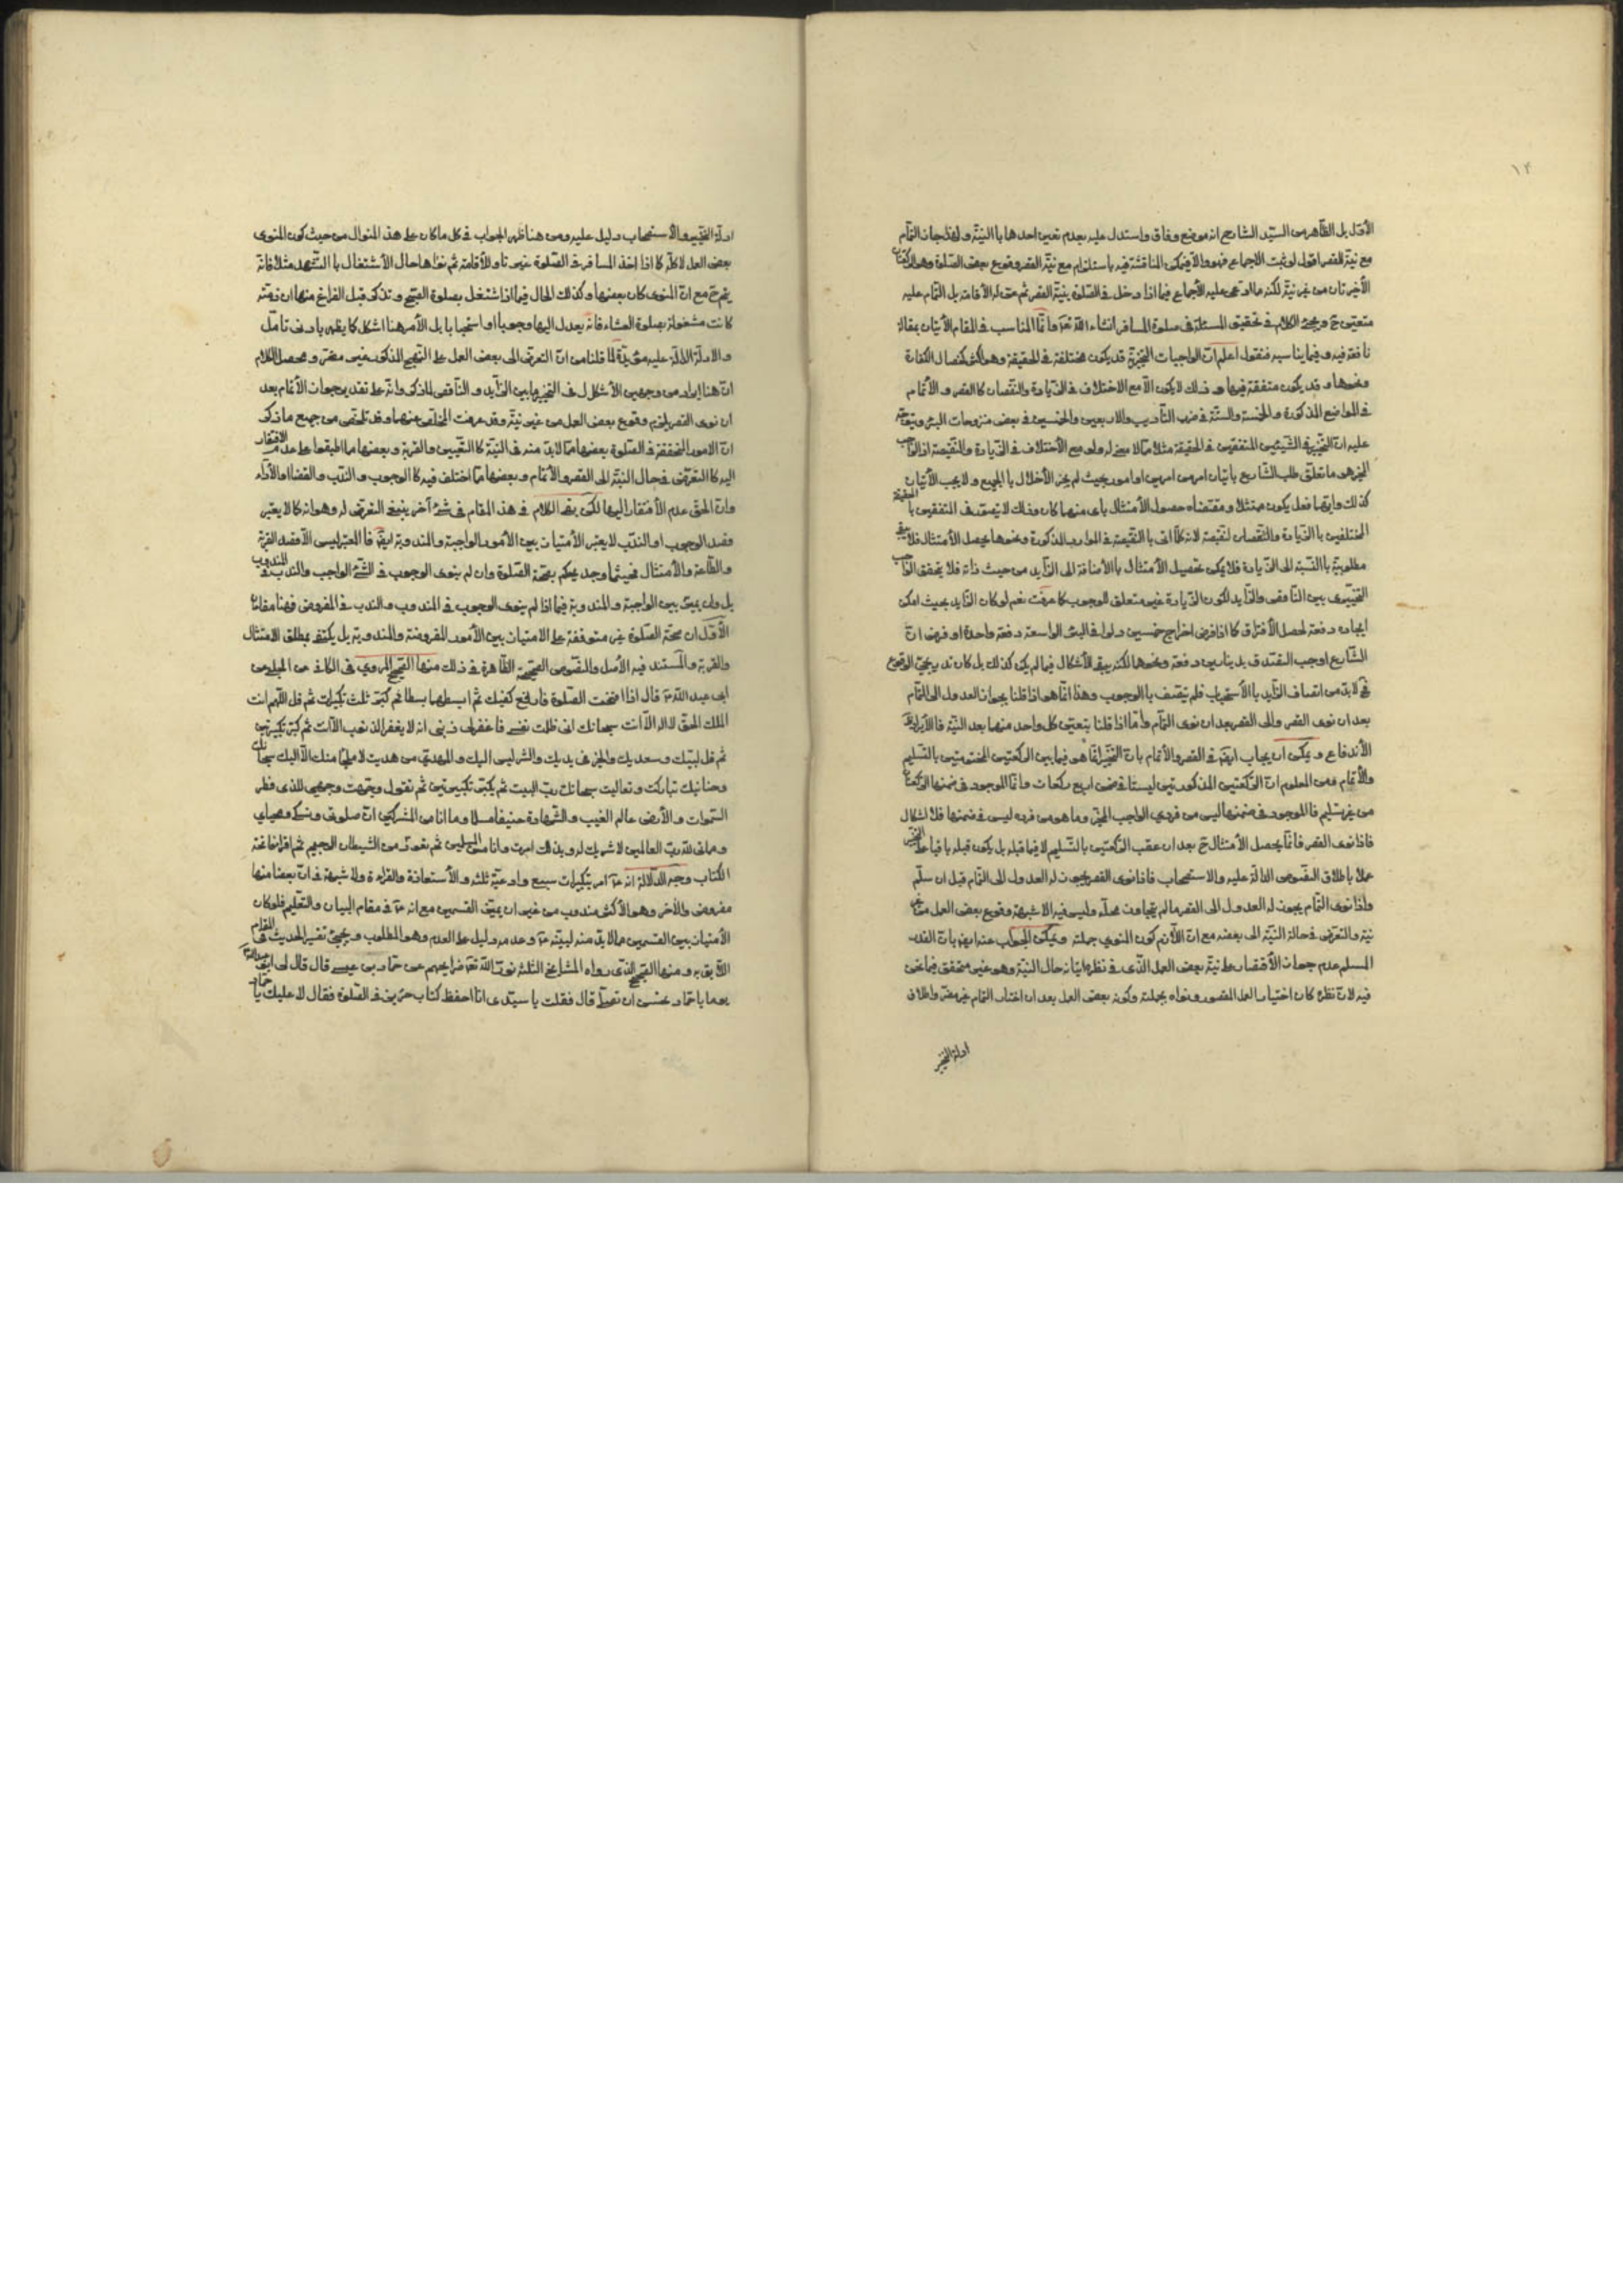 ١٣
الأوّل بل الظّاهر من السيّد الشارح انه موضع وفاق واستدل عليه بعدم تعين احدهما باالنيّة ولهذا جاز التمام
مع نيّة القصر اقول لو ثبت الاجماع فهو والّا فيمكن المناقشة فيه باستلزام مع نيّة القصر وقوع بعض الصّلوة وهو الركعتان
الأخيرتان من غير نيّة لكنه مما ادعى عليه الأجماع فيما اذا دخل في الصّلوة بنيّة القصر ثم عنّ له الأقامة بل التمام عليه
متعيّن ح ويجئ الكلام في تحقيق المسئلة في صلوة المسافر انشاء الله تعالى وامّا المناسب في المقام الأتيان بمقالة
نافعة فيه وفيما يناسبه فنقول اعلم انّ الواجبات التخييريّة قد يكون مختلفة في الحقيقة وهو اكثر كخصال الكفارة
ونحوها وقد يكون متفقة فيها وذلك لا يكون الّا مع الاختلاف في الزّيادة والنّقصان كا القصر والأتمام
في المواضع المذكورة والخمسة والستّة في ضرب التأديب والاربعين والخمسين في بعض منزوحات البئر ويتوجّه
عليه انّ التخيير في الشّيئين المتفقين في الحقيقة مثلا ممّا لا معنى له ولو مع الأختلاف في الزّيادة والنّقيصة اذ الواجب
المخيّر هو ما تعلّق طلب الشّارع بأتيان امرين امرين او امور بحيث لم يجز الأخلال با الجميع ولا يجب الأتيان
كذلك وايّهما فعل يكون ممتثلا ومقتضاه حصول الأمتثال بأى منهما كان وذلك لا يتصوّر في المتفقين با الحقيقة
المختلفين باالزّيادة والنّقصان لنقيصة لانه كلّما اتى با النّقيصة في الموارد المذكورة ونحوها يحصل الأمتثال فلا يبقى
مطلوبيّة باالنّسبة الى الزّيادة فلا يمكن تحصيل الأمتثال باالأضافة الى الزّايد من حيث ذاته فلا يتحقق الواجب
التخييرى بين النّاقص والزّايد لكون الزّيادة غير متعلق الوجوب كما عرفت نعم لو كان الزّايد بحيث امكن
ايجاده دفعة لحصل الأفتراق كما اذا فرض اخراج خمسين دلوا في البئر الواسعة دفعة واحدة او فرض انّ
الشّارع اوجب التصدّق بدينارين دفعة ونحوها لكنه يبقى الأشكال فيما لم يكن كذلك بل كان تدريجىّ الوقوع
فح لا بدّ من اتصاف الزّايد باالأستحباب فلم يتّصف باالوجوب وهذا انّما هو اذا قلنا بجواز العدول الى التمام
بعد ان نوى القصر والى القصر بعد ان نوى التمام وامّا اذا قلنا بتعيّن كلّ واحد منهما بعد النيّة فاالأيراد
الأندفاع ويمكن ان يجاب ايضا في القصر والأتمام بانّ التخيير انّما هو فيما بين الركعتين المختومتين باالتّسليم
والأتمام ومن المعلوم انّ الرّكعتين المذكورتين ليستا في ضمن اربع ركعات وانّما الموجود في ضمنها الركعتان
من غير تسليم فاالموجود في ضمنها ليس من فردي الواجب المخيّر وما هو من فرده ليس في ضمنها فلا اشكال
فاذا نوى القصر فانّما يحصل الأمتثال ح بعد ان عقب الرّكعتين باالتّسليم لا فيما قبله بل يكون قبله باقيا على التخيير
عملا باطلاق النّصوص الدّالة عليه والاستصحاب فاذا نوى القصر يجوز له العدول الى التمام قبل ان سلّم
واذا نوى التمام يجوز له العدول الى القصر ما لم يتجاوز محلّه وليس فيه الا شبهة وقوع بعض العمل من غير
نيّة والتعرّض في حالة النيّة الى بعضه مع انّ اللّازم كون المنوي جملته ويمكن الجواب عنه ايضا بانّ القدر
المسلّم عدم جواز الأقتصار على نيّة بعض العمل الّذى في نظره اتيانه حال النيّة وهو غير متحقق فيما نحن
فيه لانّ نظره كان اختيار العمل المقصور ونواه بجملته وكونه بعض العمل بعد ان اختار التمام غير مضرّ واطلاق
ادلة التخيير
ادلّة التخيير والأستصحاب دليل عليه ومن هنا ظهر الجواب في كل ما كان على هذا المنوال من حيث كون المنوى
بعض العمل لا كلّه كما اذا اخذ المسافر في الصّلوة غير ناو الأقامة ثم نواها حال الأشتغال با التّشهد مثلا فانّه
يتم ح مع انّ المنوى كان بعضها وكذلك الحال فيما اذا اشتغل بصلوة الصّبح وتذكر قبل الفراغ منها ان ذمّته
كانت مشغولة بصلوة العشاء فانّه يعدل اليها وجوبا او استحبابا بل الأمر هنا اشكل كما يظهر بادنى تأمّل
والادلّة الدّالة عليه مؤيّدة لما قلنا من انّ التعرّض الى بعض العمل على النّهج المذكور غير مضرّ ومحصل الكلام
انّ هنا ايراد من وجهين الأشكال في التخيير ما بين الزّايد والنّاقص لما ذكر وانّه على تقدير جواز الأتمام بعد
ان نوى القصر يلزم وقوع بعض العمل من غير نيّة وقد عرفت المخلّص عنهما وقد تلخّص من جميع ما ذكر
انّ الامور المتحققة في الصّلوة بعضها ممّا لا بدّ منه في النيّة كا التعيين والقربة وبعضها مما اطبقوا على عدم الافتقار
اليه كا التعرّض في حال النيّة الى القصر والأتمام وبعضها ممّا اختلف فيه كا الوجوب والندب والقضاء والأداء
وانّ الحقّ عدم الأفتقار اليها لكن بقى الكلام في هذا المقام في شئ آخر ينبغي التعرّض له وهو انه كما لا يعتبر
قصد الوجوب او الندب لا يعتبر الأمتياز بين الأمور الواجبة والمندوبة ايضا فاالمعتبر ليس الّا قصد القربة
والطّاعة والأمتثال فحيثما وجد يحكم بصحّة الصّلوة وان لم ينوى الوجوب في الشّئ الواجب والندب في المندوب
بل وان يميّز بين الواجبة والمندوبة فيما اذا لم ينوى الوجوب في المندوب والندب في المفروض فهنا مقامان
الأوّل ان صحّة الصّلوة غير متوقفة على الامتياز بين الأمور المفروضة والمندوبة بل يكتفى بمطلق الامتثال
والقربة والمستند فيه الأصل والنّصوص الصّحيحة الظّاهرة في ذلك منها الصّحيح المروي في الكافي عن الحلبي عن
ابى عبد الله ع قال اذا افتتحت الصّلوة فارفع كفّيك ثم ابسطهما بسطا ثم كبّر ثلث تكبيرات ثم قل اللّهم انت
الملك الحقّ لا اله الّا انت سبحانك انى ظلمت نفسي فاغفر لى ذنبي انه لا يغفر الذنوب الّا انت ثم كبّر تكبيرتين
ثم قل لبّيك وسعديك والخير في يديك والشر ليس اليك والمهديّ من هديت لا ملجأ منك الّا اليك سبحانك
وحنانيك تباركت وتعاليت سبحانك ربّ البيت ثم يكبّر تكبيرتين ثم تقول وجّهت وجهي للذى فطر
السّموات والأرض عالم الغيب والشّهادة حنيفا مسلما وما انا من المشركين انّ صلوتي ونسكي ومحياي
ومماتي للّه ربّ العالمين لا شريك له وبذلك امرت وانا من المسلمين ثم تعوّذ من الشيطان الرجيم ثم اقرأ فاتحة
الكتاب وجه الدلالة انه ع امر بتكبيرات سبع وادعيّة ثلثة والأستعاذة والقراءة ولا شبهة في انّ بعضا منها
مفروض والآخر وهو الأكثر مندوب من غير ان يميّز القسمين مع انه ع في مقام البيان والتعليم فلو كان
الأمتياز بين القسمين مما لا بدّ منه لبيّنه ع وعدمه دليل على العدم وهو المطلوب ويجيئ تفسير الحديث في المقام
اللّايق به ومنها الصّحيح الّذى رواه المشايخ الثلثة نوّر الله تعالى ضرايحهم عن حمّاد بن عيسى قال قال لى ابو عبد الله ع
يوما يا حمّاد تحسن ان تصلّى قال فقلت يا سيّدى انا احفظ كتاب حريز في الصّلوة فقال لا عليك يا حمّاد